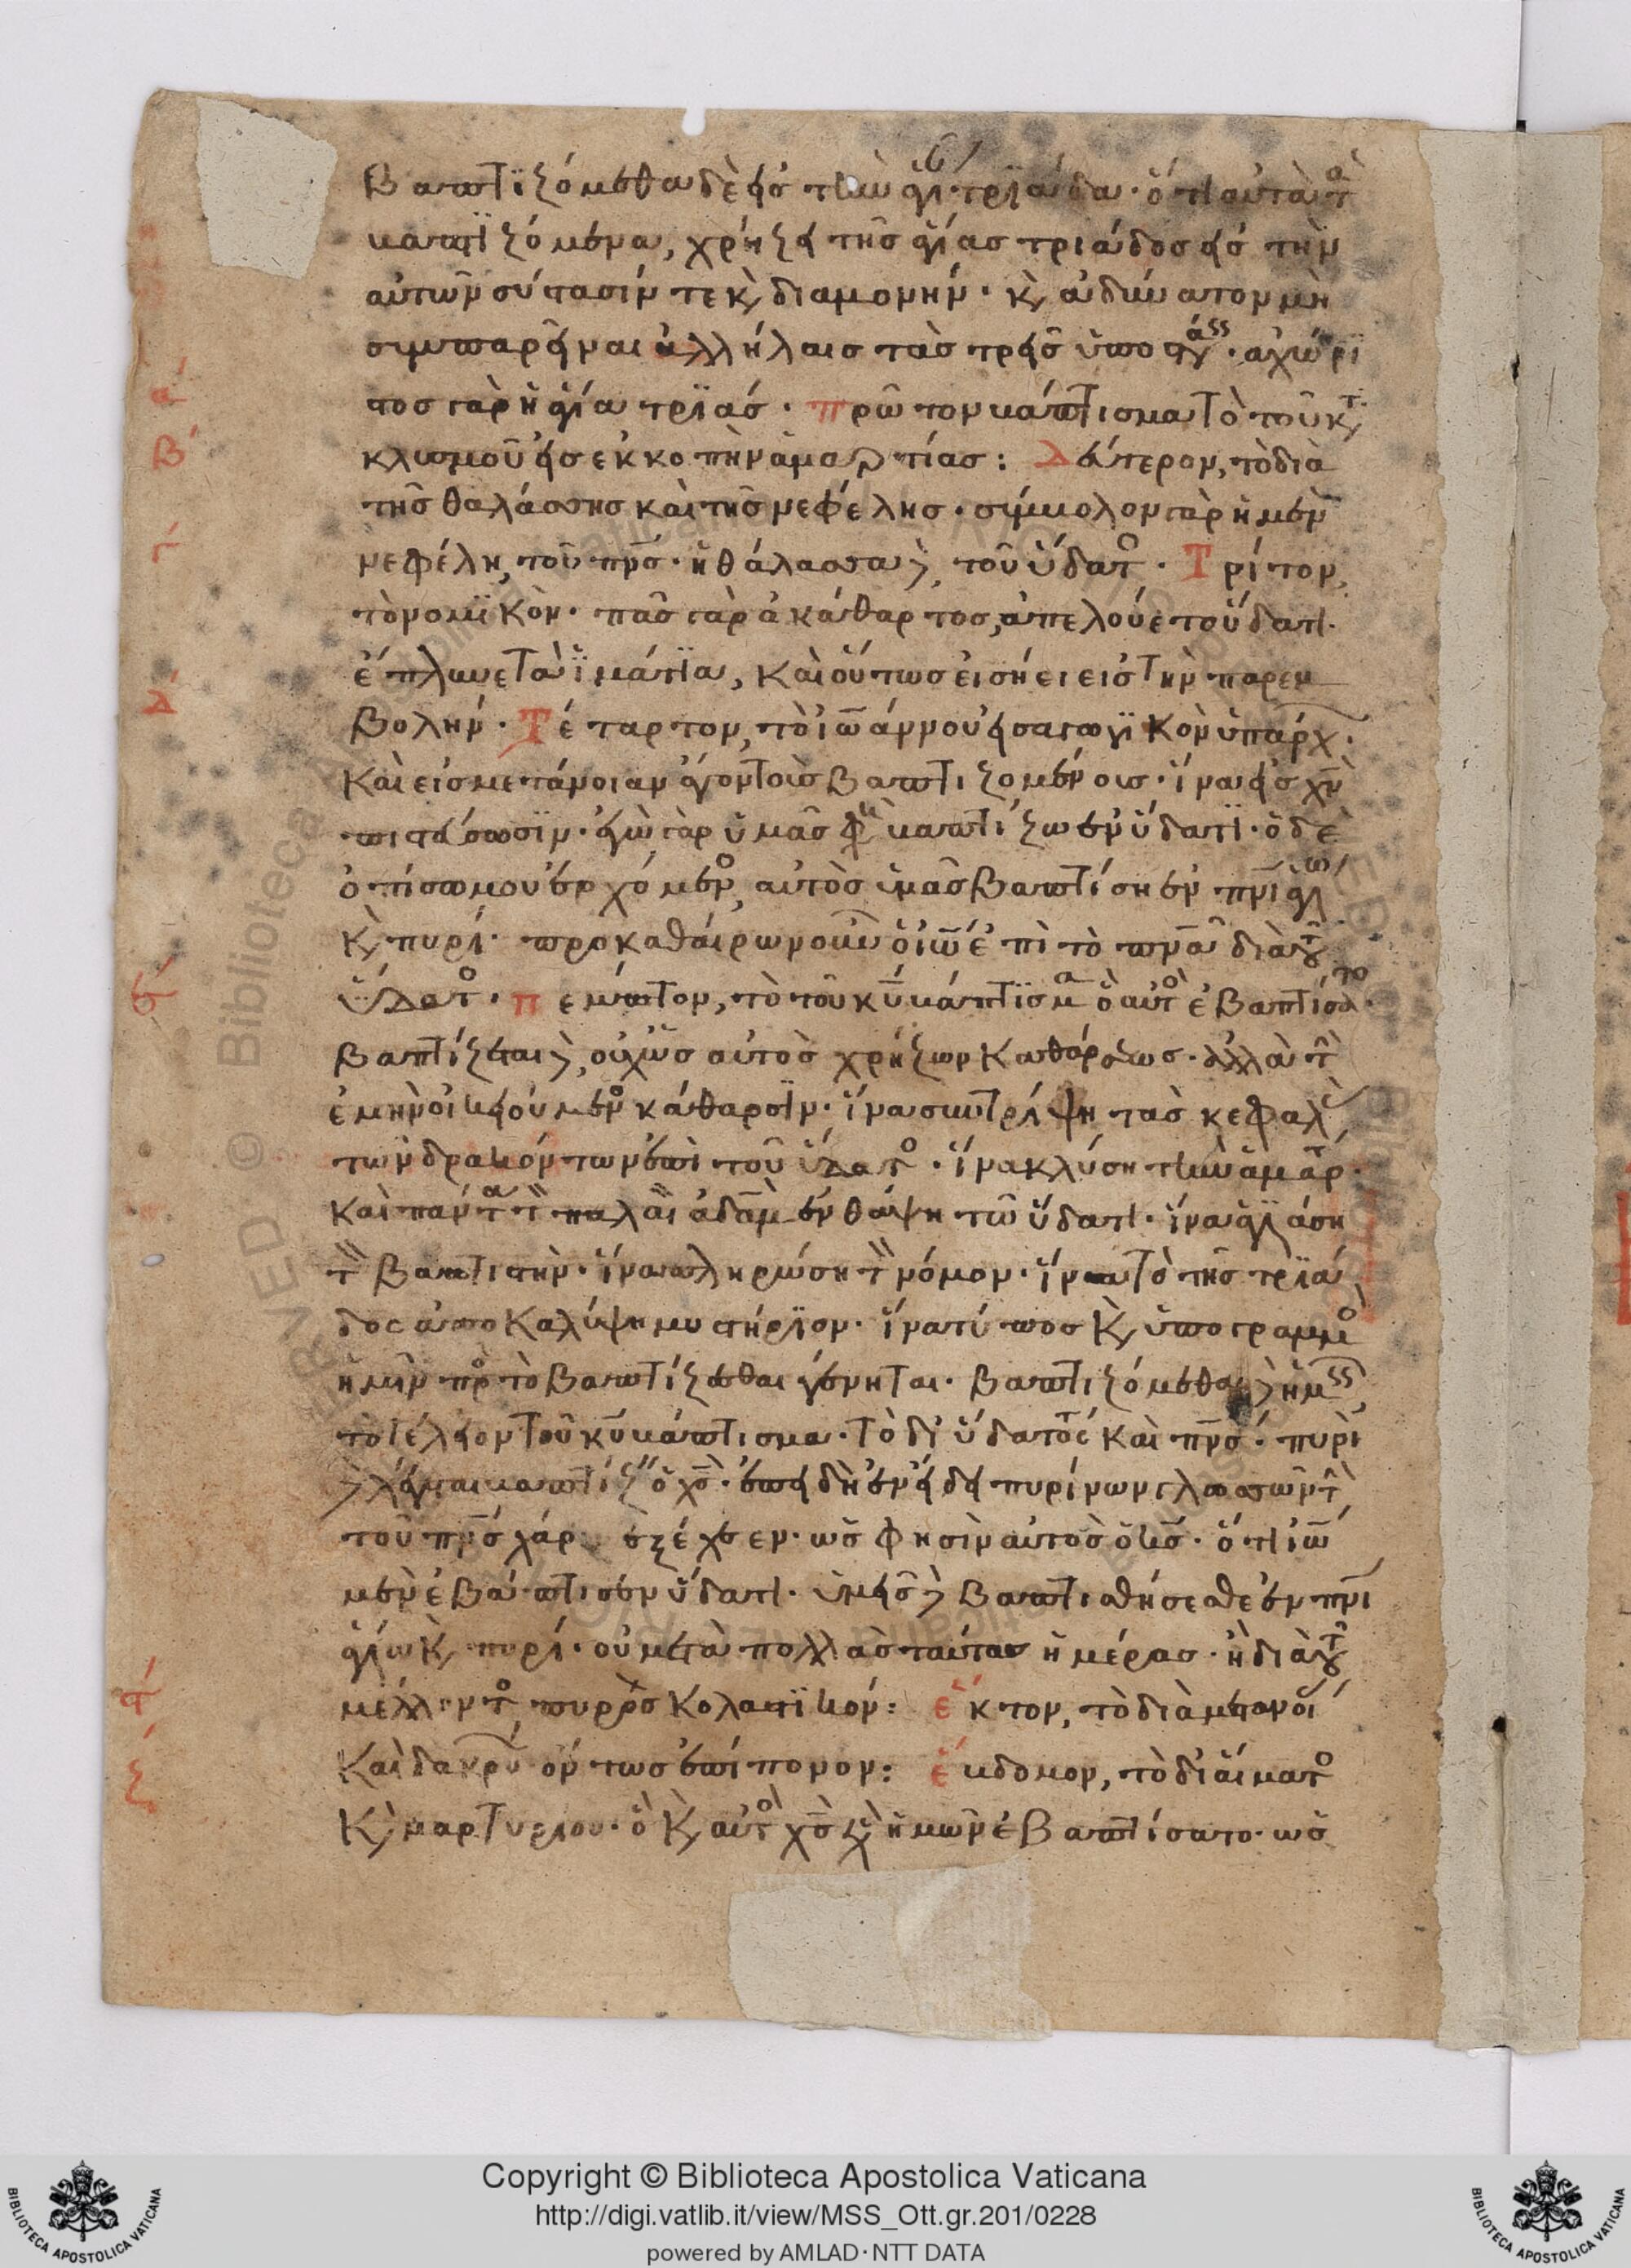 Βαπτϊζόμεθα δὲ εἰς τὴν ἁγί τρϊάδα · ὅτι αὐτὰ τὰ
βαπτιζόμενα, χρήζει τῆς ἁγίας τριάδος εἰς τὴν
αὐτῶν σύστασίν τε κ διαμονήν · κ ἀδύνατον μὴ
συμπαρεῖναι ἀλλήλαις τὰς τρεῖς ὑποστάσεις · ἀχώρι
στος γὰρ ἡ ἁγία τρϊάς · πρῶτον βάπτισμα τὸ τοῦ κατ
κλυσμοῦ εἰς ἐκκοπὴν ἁμαρτίας : Δεύτερον, τὸ διὰ
τῆς θαλάσσης καὶ τῆς νεφέλης · σύμβολον γὰρ ἡ μὲν
νεφέλη, τοῦ πνς · ἡ θάλασσα δὲ, τοῦ ὕδατο · Τρίτον,
τὸ νομϊκὸν · πᾶς γὰρ ἀκάθαρτος, ἀπελούετο ὕδατι ·
ἔπλυνε τὰ ἱμάτϊα, καὶ οὕτως εἰσήει εἰς τὴν παρεμ
βολήν · Τέταρτον, τὸ ἰωάννου εἰσαγωγϊκὸν ὑπάρχ ·
Καὶ εἰς μετάνοιαν ἄγον τοὺς βαπτιζομένους · ἵνα εἰς χν
πιστεύσωσϊν · ἐγὼ γὰρ ὑμᾶς φη βαπτίζω ἐν ὕδατϊ · ὁ δὲ
ὀπίσω μου ἐρχόμενο, αὐτὸς ὑμᾶς βαπτίσει ἐν πνι ἁγίω
κ πυρί · προκαθαίρων οὖν ὁ ἰω ἐπὶ τὸ πνα διὰ τοῦ
ὕδατο · πέμπτον, τὸ τοῦ κυ βάπτϊσμα ὃ αὐτὸ ἐβαπτίσατο ·
βαπτίζεται δὲ, οὐχ ὡς αὐτὸς χρήζων καθάρσεως · ἀλλὰ τὴ
ἐμὴν οἰκειούμενο κάθαρσϊν · ἵνα συντρίψη τὰς κεφαλὰ
τῶν δρακόντων ἐπὶ τοῦ ὕδατο · ἵνα κλύση τὴν ἁμαρτ ·
καὶ πάντα τὸν παλαι ἀδὰμ ἐνθάψη τῶ ὕδατι · ἵνα ἁγϊάση
τὸν βαπτιστὴν · ἵνα πληρώση τὸν νόμον · ἵνα τὸ τῆς τρϊά
δος ἀποκαλύψη μυστήρϊον · ἵνα τύπος κ ὑπογραμμὸ
ἡμῖν πρὸ τὸ βαπτίζεσθαι γένηται · βαπτιζόμεθα δὲ ἡμεῖς
τὸ τέλειον τοῦ κυ βάπτισμα · τὸ δι' ὕδατός καὶ πνς · πυρὶ
δὲ λέγεται βαπτίζειν ὁ χς · ἐπειδὴ ἐν εἴδει πυρίνων γλωσσῶν τὴ
τοῦ πνς χάριν ἐξέχεεν · ὥς φησὶν αὐτὸς ὁ κς · ὅτι ἰω
μὲν ἐβάπτισεν ὕδατι · ὑμεῖς δὲ βαπτισθήσεσθε ἐν πνι
ἁγίω κ πυρί · οὐ μετὰ πολλὰς ταύτας ἡμέρας · ἢ διὰ τοῦ
μέλλοντο πυρὸς κολαστϊκόν : ἕκτον, τὸ διὰ μετανοί
καὶ δακρύ ὄντως ἐπίπονον : ἕβδομον, τὸ δι' αἵματο
κ μαρτυρίου · ὃ κ αὐτὸ χς ὑπὲρ ἡμῶν ἐβαπτίσατο · ὡς
α
β
γ
δ
ε
ς
ζ
Copyright © Biblioteca Apostolica Vaticana
http://digi.vatlib.it/view/MSS_Ott.gr.201/0228
powered by AMLAD·NTT DATA
BIBLIOTECA APOSTOLICA VATICANA
BIBLIOTECA APOSTOLICA VATICANA